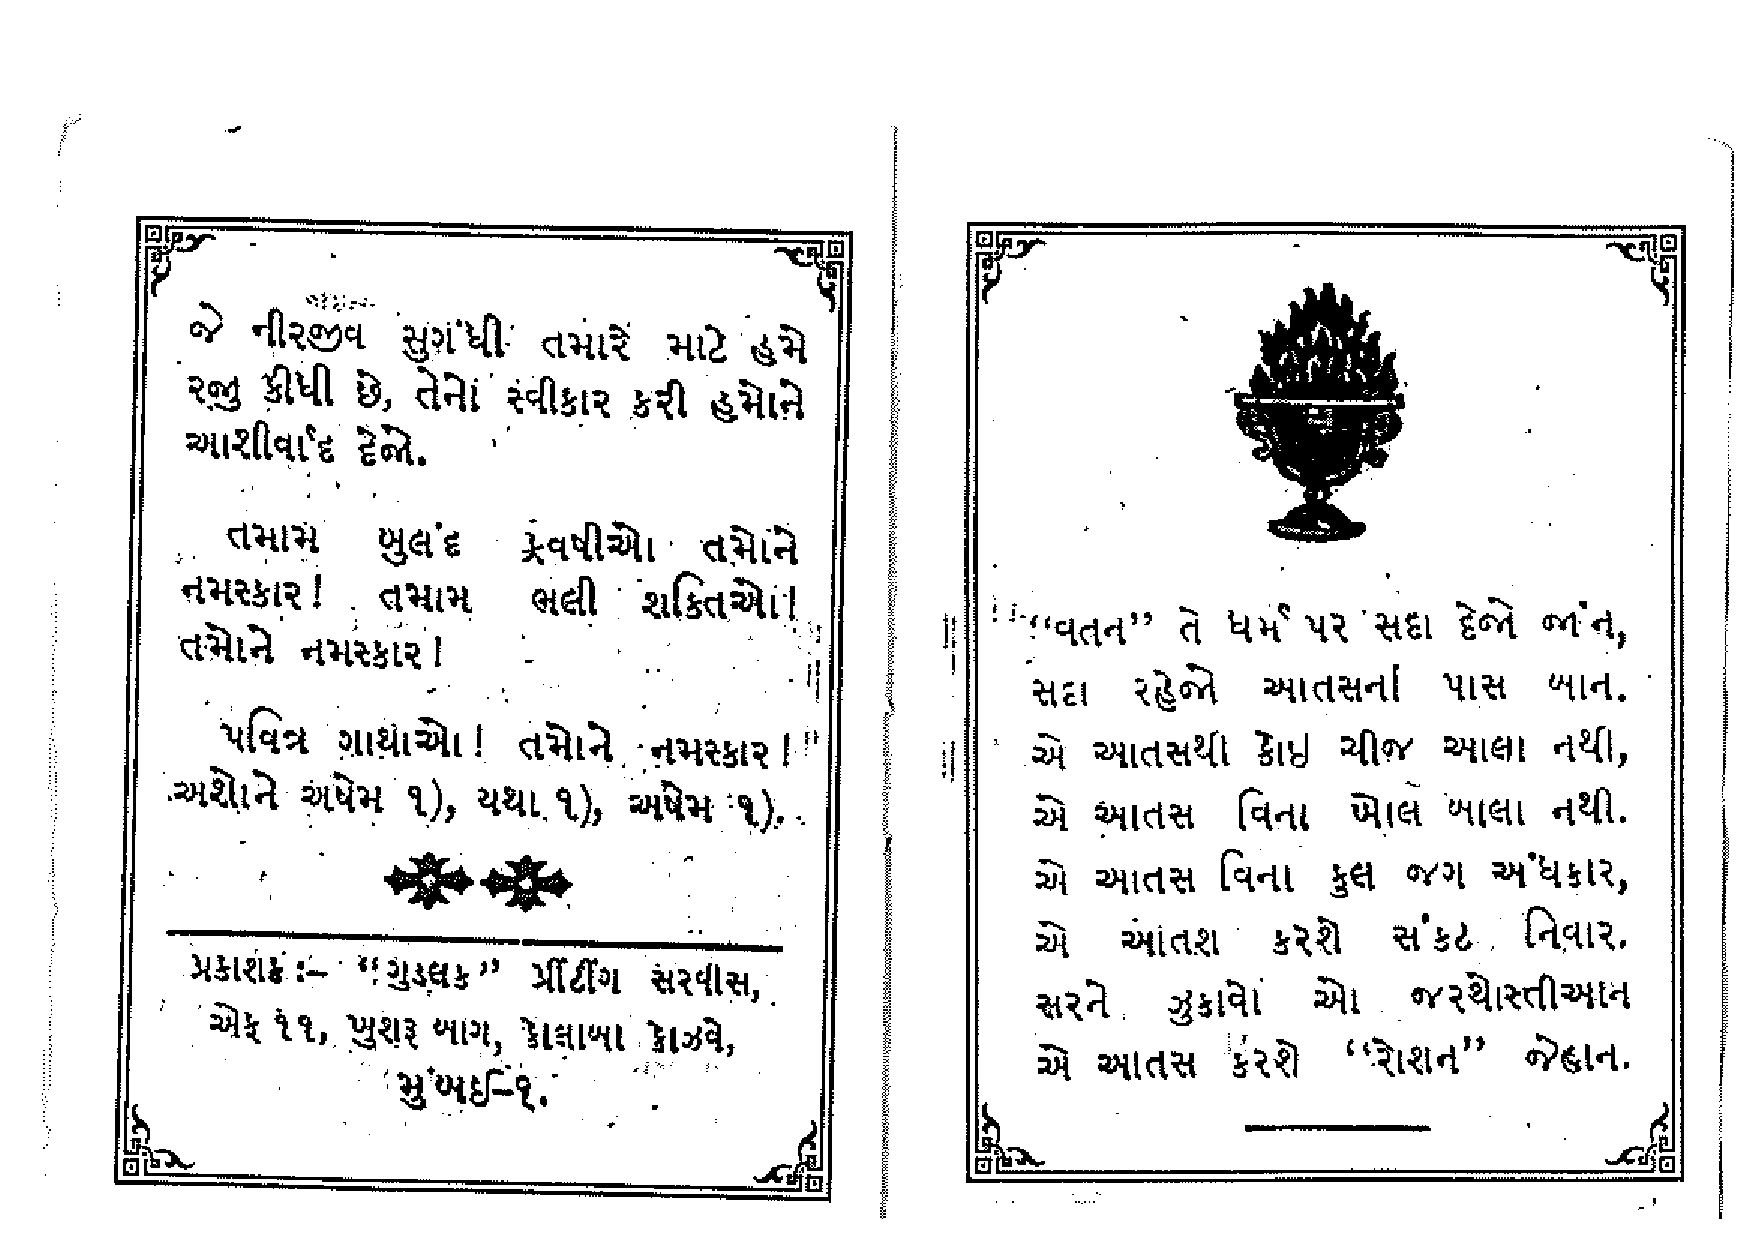 જે નીરજીવ સુગંધી તમારે માટે હમે
રજુ કીધી છે, તેનો સ્વીકાર કરી હમોને
આશીર્વાદ દેજો.
તમામ બુલંદ ફ્રવષીઓ તમોને
નમસ્કાર! તમામ ભલી શક્તિઓ!
તમોને નમસ્કાર!
પવિત્ર ગાથાઓ! તમોને નમસ્કાર!
અશોને અષેમ ૧), યથા ૧), અષેમ ૧).
પ્રકાશક :– “ગુડલક” પ્રીંટીંગ સરવીસ,
એફ ૧૧, ખુશરૂ બાગ, કોલાબા કોઝવે,
મુંબઈ–૧.
“વતન” તે ધર્મ પર સદા દેજો જાંન,
સદા રહેજો આતસનાં પાસ બાન.
એ આતસથી કોઇ ચીજ આલા નથી,
એ આતસ વિના બોલ બાલા નથી.
એ આતસ વિના કુલ જગ અંધકાર,
એ આતશ કરશે સંકટ નિવાર.
સરને ઝુકાવો ઓ જરથોસ્તીઆન
એ આતસ કરશે “રોશન” જેહાન.